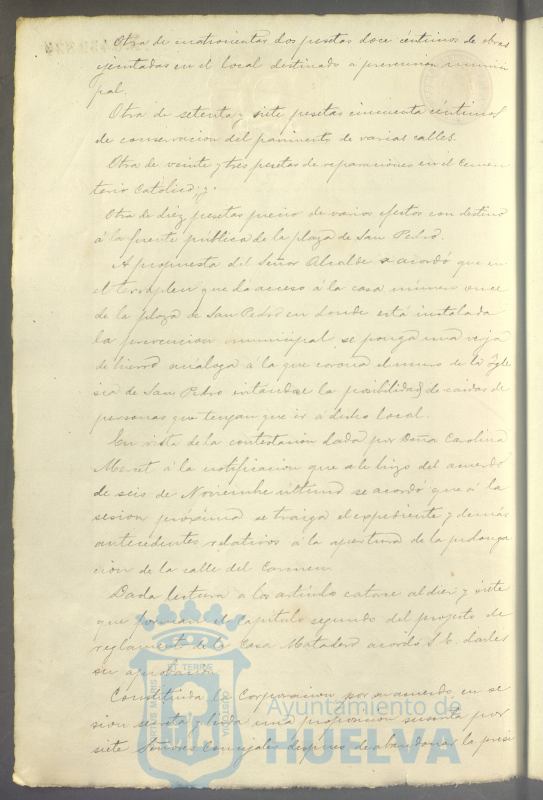 Otra de cuatrocientas dos pesetas doce céntimos de obras
ejecutadas en el local destinado a prevencion munici
pal.
Otra de setenta y siete pesetas cincuenta céntimos
de conservacion del pavimento de varias calles.
Otra de veinte y tres pesetas de reparaciones en el Cemen
terio Católico, y.
Otra de diez pesetas precio de varios efectos con destino
á la fuente pública de la plaza de San Pedro.
A propuesta del Señor Alcalde se acordó que en
el terraplen que da acceso á la casa número once
de la plaza de San Pedro en donde está instalada
la prevencion municipal se ponga una reja
de hierro análoga á la que corona el muro de la Ygle
sia de San Pedro evitándose la posibilidad de caidas de
personas que tengan que ir á dicho local.
En vista de la contestacion dada por Doña Carolina
á la notificacion que se le hizo del acuerdo
de seis de Noviembre último se acordó que á la
sesion próxima se traiga el expediente y demás
antecedentes relativos á la apertura de la prolonga
cion de la calle del Carmen.
Dada lectura a los artículo catorce al diez y siete
que forman el Capítulo segundo del proyecto de
reglamento de la Casa Matadero acordó S. E. darles
su aprobacion.
Constituida la Corporacion por su acuerdo en se
sion secreta y leida una proposicion suscrita por
siete Señores Concejales despues de abandonar la presi
PORTUS MARIS ET TERRE CUSTODIA
Ayuntamiento de
HUELVA